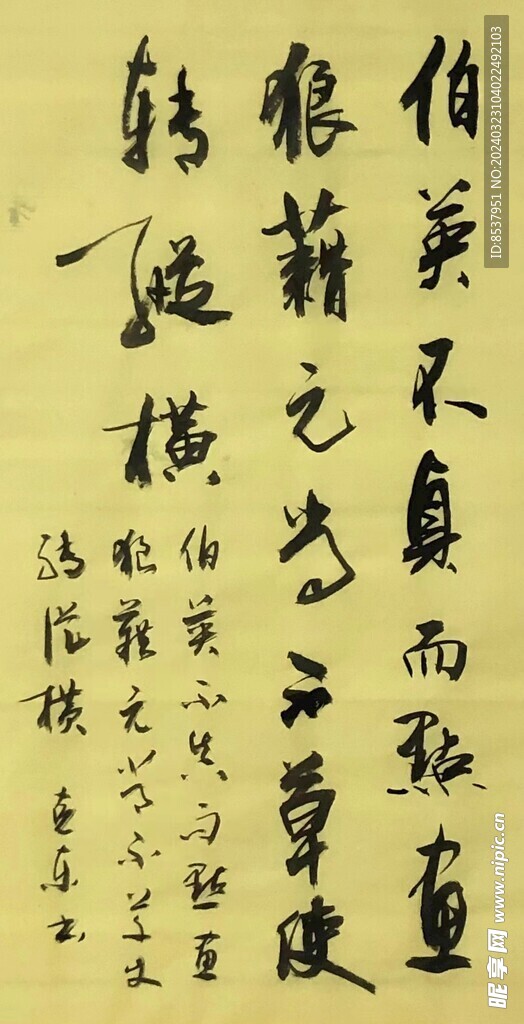 伯英不真而點畫
狼藉元常不草使
转縱横
伯英不真而點畫
狼藉元常不草使
转從横 
东书
ID:8537951 NO:20240323104022492103
昵享网 www.nipic.cn